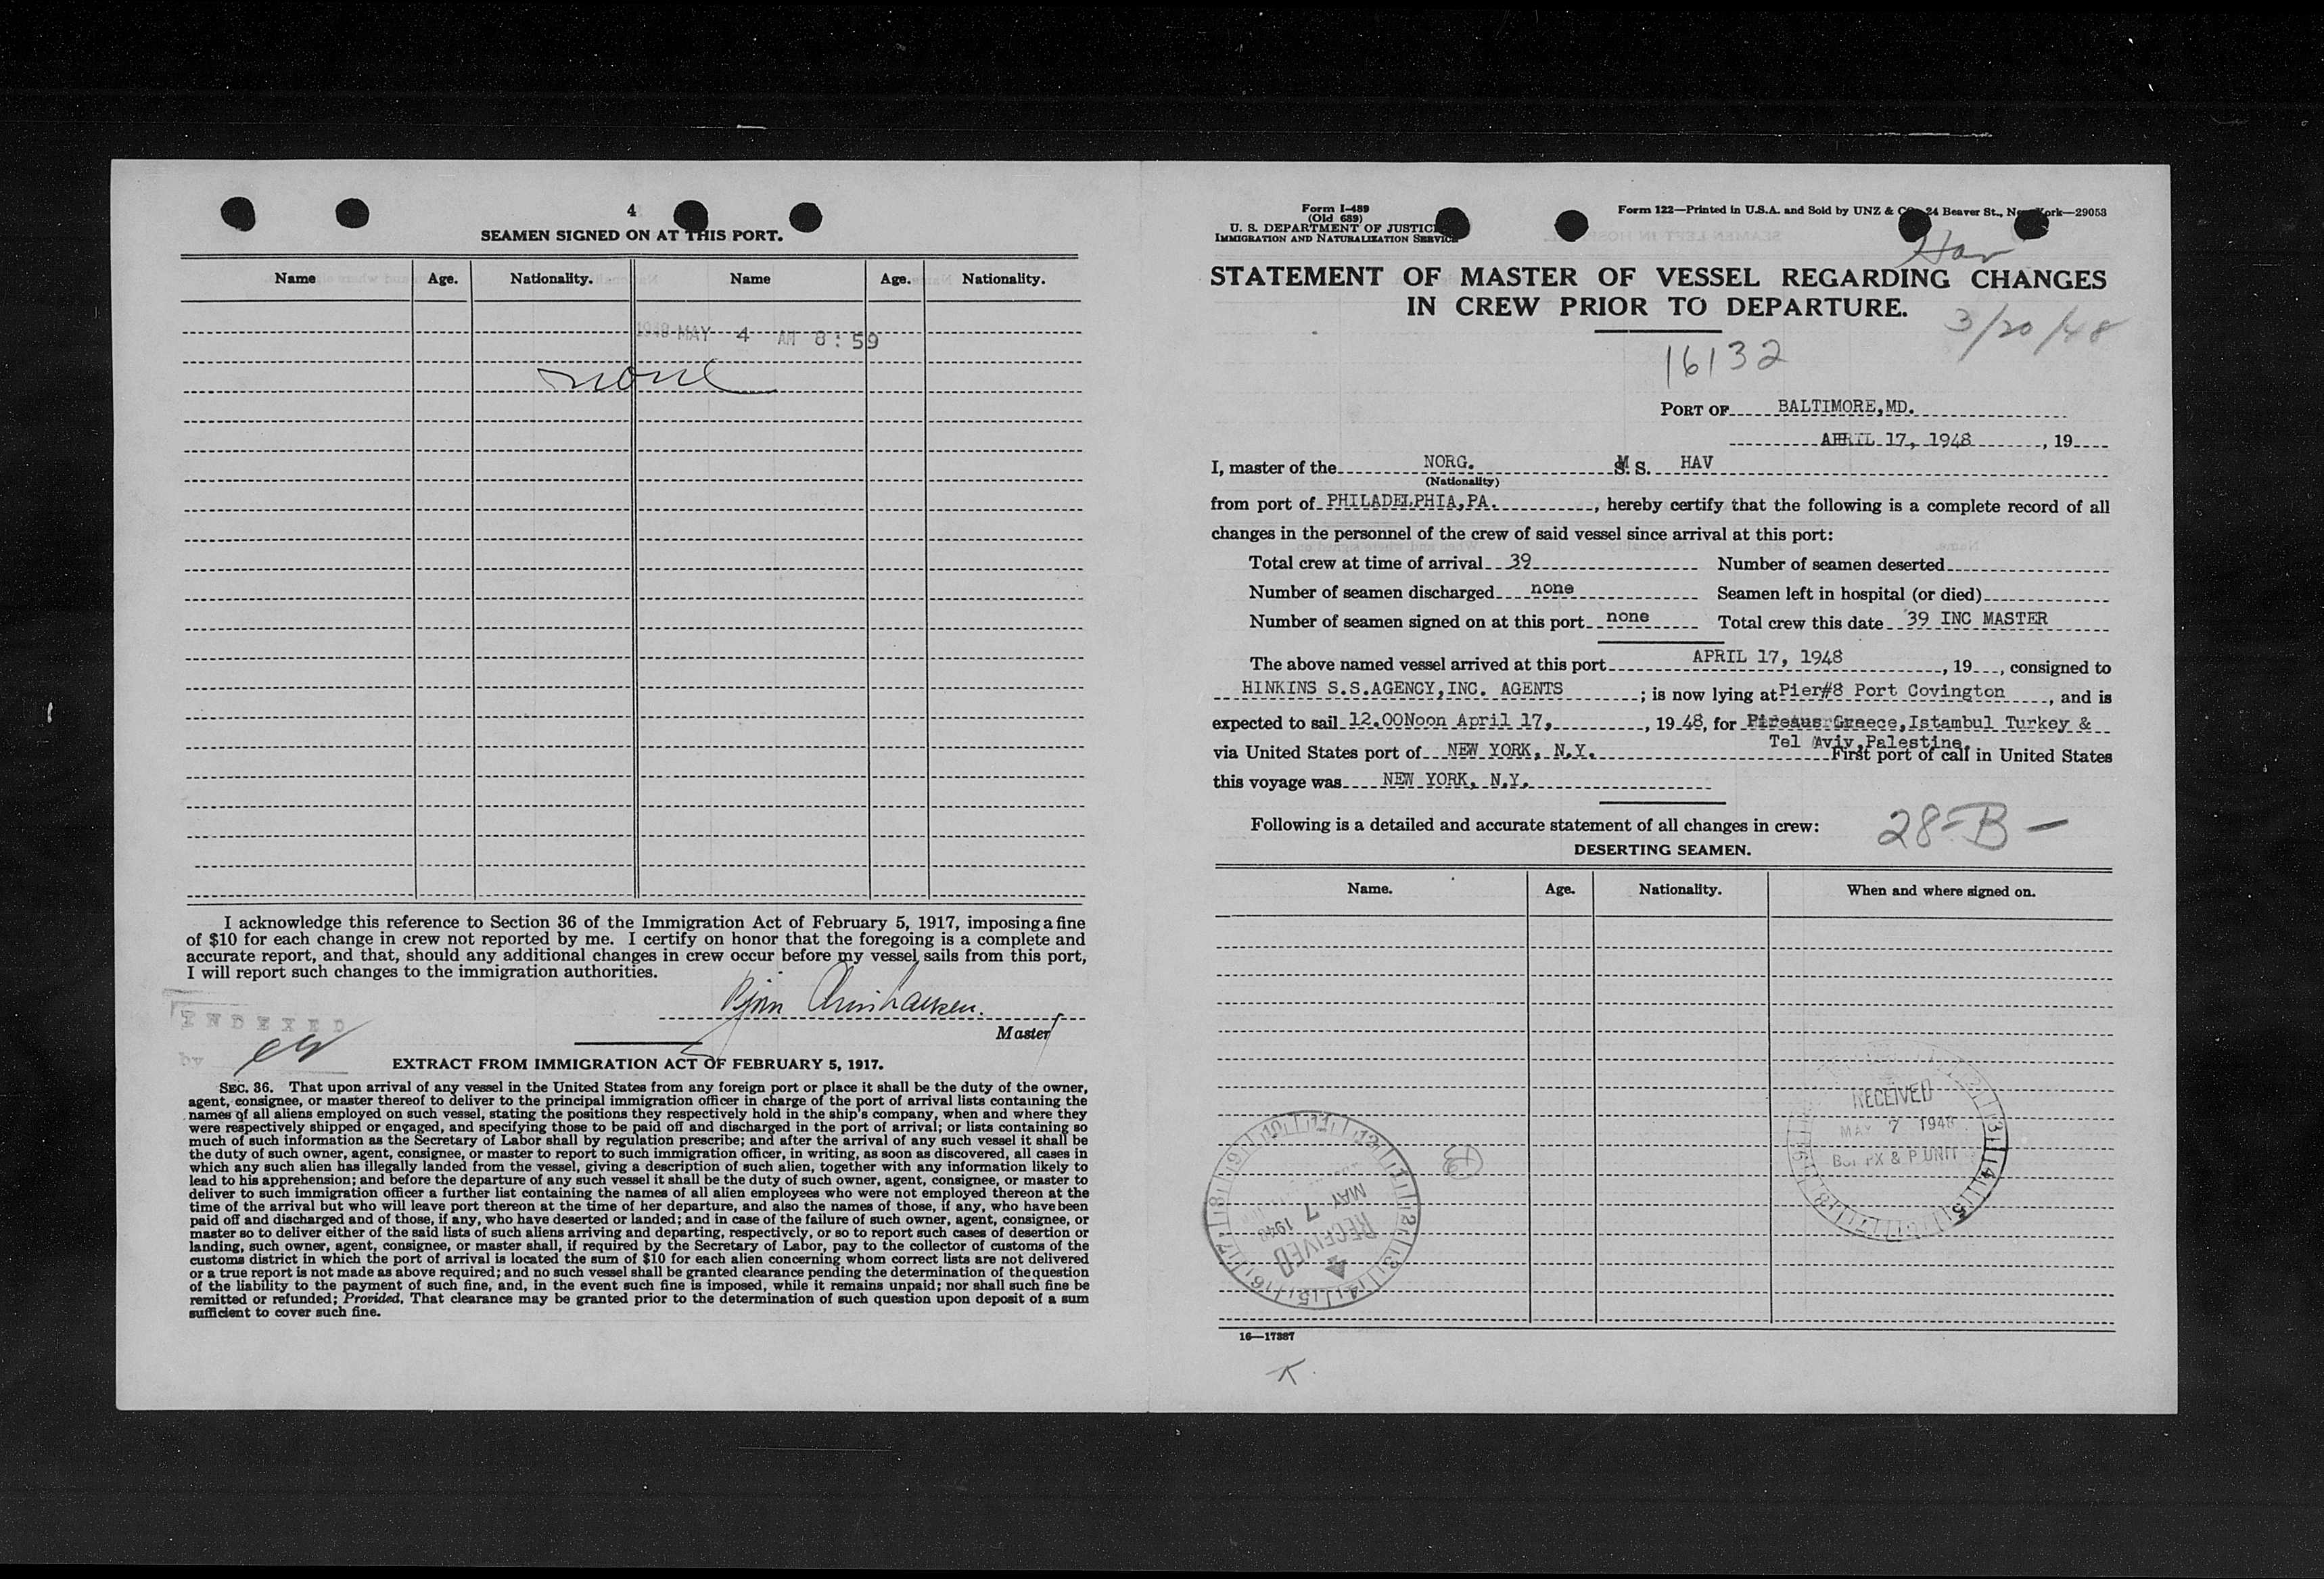 4
SEAMEN SIGNED ON AT THIS PORT.
Name Age. Nationality. Name Age. Nationality.
1948 MAY 4 AM 8:59
none
I acknowledge this reference to Section 36 of the Immigration Act of February 5, 1917, imposing a fine
of $10 for each change in crew not reported by me. I certify on honor that the foregoing is a complete and
accurate report, and that, should any additional changes in crew occur before my vessel sails from this port,
I will report such changes to the immigration authorities.
Bjørn
Master
INDEXED
EXTRACT FROM IMMIGRATION ACT OF FEBRUARY 5, 1917.
SEC. 36. That upon arrival of any vessel in the United States from any foreign port or place it shall be the duty of the owner,
agent, consignee, or master thereof to deliver to the principal immigration officer in charge of the port of arrival lists containing the
names of all aliens employed on such vessel, stating the positions they respectively hold in the ship's company, when and where they
were respectively shipped or engaged, and specifying those to be paid off and discharged in the port of arrival; or lists containing so
much of such information as the Secretary of Labor shall by regulation prescribe; and after the arrival of any such vessel it shall be
the duty of such owner, agent, consignee, or master to report to such immigration officer, in writing, as soon as discovered, all cases in
which any such alien has illegally landed from the vessel, giving a description of such alien, together with any information likely to
lead to his apprehension; and before the departure of any such vessel it shall be the duty of such owner, agent, consignee, or master to
deliver to such immigration officer a further list containing the names of all alien employees who were not employed thereon at the
time of the arrival but who will leave port thereon at the time of her departure, and also the names of those, if any, who have been
paid off and discharged and of those, if any, who have deserted or landed; and in case of the failure of such owner, agent, consignee, or
master so to deliver either of the said lists of such aliens arriving and departing, respectively, or so to report such cases of desertion or
landing, such owner, agent, consignee, or master shall, if required by the Secretary of Labor, pay to the collector of customs of the
customs district in which the port of arrival is located the sum of $10 for each alien concerning whom correct lists are not delivered
or a true report is not made as above required; and no such vessel shall be granted clearance pending the determination of the question
of the liability to the payment of such fine, and, in the event such fine is imposed, while it remains unpaid; nor shall such fine be
remitted or refunded; Provided, That clearance may be granted prior to the determination of such question upon deposit of a sum
sufficient to cover such fine.
Form I-489
(Old 689)
U. S. DEPARTMENT OF JUSTICE
IMMIGRATION AND NATURALIZATION SERVICE
Form 122—Printed in U.S.A. and Sold by UNZ & CO., 24 Beaver St., New York—29053
Hav
STATEMENT OF MASTER OF VESSEL REGARDING CHANGES
IN CREW PRIOR TO DEPARTURE.
3/20/48
16132
PORT OF BALTIMORE,MD.
APRIL 17, 1948, 19
I, master of the NORG. M. S. HAV
(Nationality)
from port of PHILADELPHIA,PA., hereby certify that the following is a complete record of all
changes in the personnel of the crew of said vessel since arrival at this port:
Total crew at time of arrival 39 Number of seamen deserted
Number of seamen discharged none Seamen left in hospital (or died)
Number of seamen signed on at this port none Total crew this date 39 INC MASTER
The above named vessel arrived at this port APRIL 17, 1948, 19, consigned to
HINKINS S.S.AGENCY,INC. AGENTS; is now lying at Pier#8 Port Covington, and is
expected to sail 12.00Noon April 17,, 19 48, for Pireaus Greece,Istambul Turkey &
Tel Aviv,Palestine.
via United States port of NEW YORK, N.Y. First port of call in United States
this voyage was NEW YORK, N.Y.
Following is a detailed and accurate statement of all changes in crew:
28-B-
DESERTING SEAMEN.
Name. Age. Nationality. When and where signed on.
RECEIVED
MAY 7 1948
RECEIVED
MAY 7 1948
16—17387
K